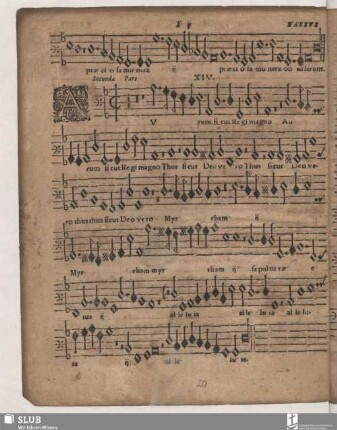 BASSVS
præ ci o sa mu nera ij præ ci o sa mu nera ob tulerunt.
Secunda Pars XIV.
A V rum si cut Re gi magno Au
rum si cut Re gi magno Thus sicut Deo ve ro Thus sicut Deo ve-
ro thus thus sicut Deo vero Myr rham ij
Myr rham myr rham ij sepultu ræ e
ius ij al le lu ia al le lu ia al le lu-
ia ij al le lu ia.
20
SLUB
Wir führen Wissen.